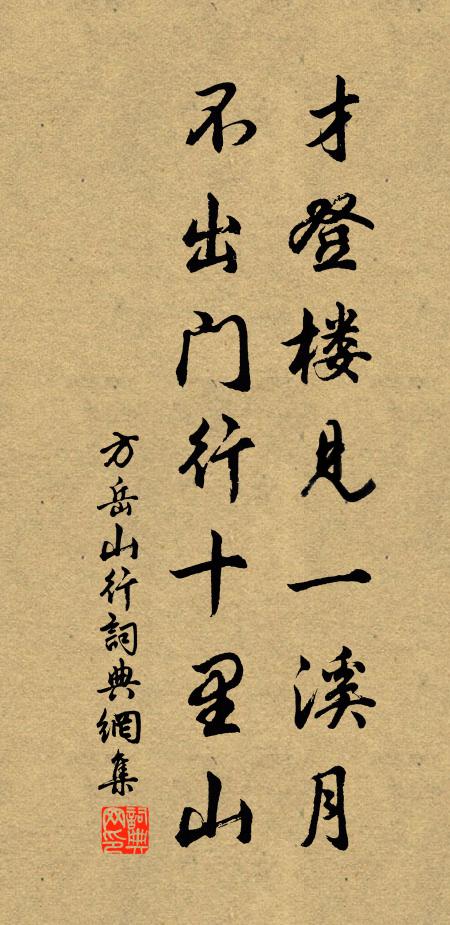 才登楼见一溪月
不出门行十里山
方岳山行詞典網集
詞典网印